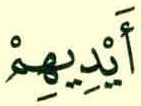 أَيْدِيهِمْ